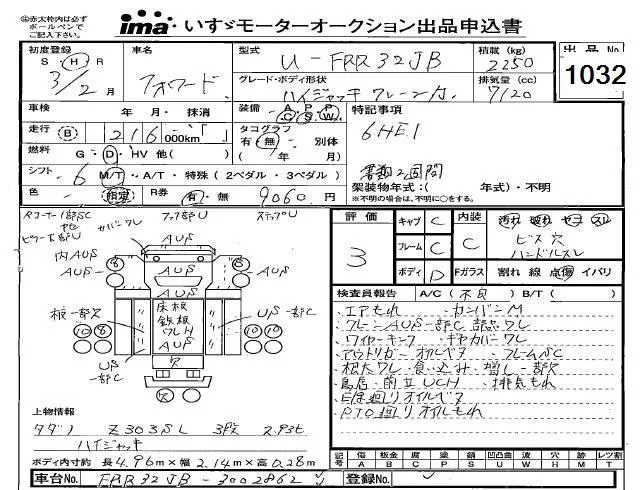 ㊟赤太枠内は必ず
ボールペンで
ご記入下さい。
ima いすゞモーターオークション出品申込書
初度登録
S H R
3/2月
車名
フォワード
型式
U-FRR32JB
積載 (kg)
2250
グレード・ボディ形状
ハイジャッキ クレーン付
排気量 (cc)
7120
出品No.
1032
車検 年・月・抹消
装備 A・P・P
C・S・W
特記事項
6HE1
書類2週間
走行 B 216 000km
タコグラフ
有・無・別体
( 年 月)
燃料 G・D・HV 他( )
シフト 6 M/T・A/T・特殊(2ペダル・3ペダル)
架装物年式:( 年式)・不明
※不明の場合は、不明に○をする。
色 - 指定
R券 有・無 9060円
Rコーナー1部SC
ヤセ
カバーワレ
フェンダ部U
ステップU
ピラー下部U
内AUS
AUS
AUS
AUS
AUS
床板
鉄板
ワレH
AUS
板一部欠
US
一部C
US
一部C
欠
評価
3
キャブ C
フレーム C
ボディ D
内装 C
Fガラス
汚れ 破れ ヤニ スレ
ビス穴
ハンドルスレ
割れ 線 点傷 イパリ
検査員報告 A/C(不良) B/T( )
・エアもれ ・カンバンM
・クレーンAUS一部C 部品ワレ
・ワイヤーキンク ・ギヤカバーワレ
・アウトリガーオイルベタ ・フレームSC
・根太ワレ・食い込み・増し一部欠
・鳥居・前立UCH ・排気もれ
・E/G廻りオイルベタ
・PTO廻りオイルもれ
上物情報
タダノ Z303SL 3段 2.93t
ハイジャッキ
ボディ内寸約 長4.96m×幅2.14m×高0.28m
記号 傷 板金 腐 塗 錆 凹凸凹 波 穴 跡 レンズ割
A B C P S U W H M T
車台No. FRR32JB-3002862
登録No.